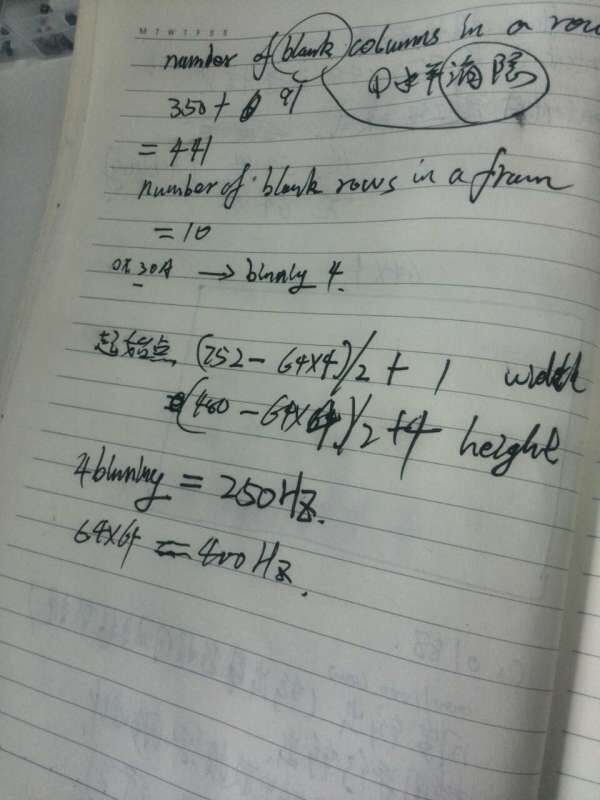 M T W T F S S
number of blank columns in a row
① 水平消隐
350 + 91
= 441
number of blank rows in a fram
= 10
0x30A → binnly 4.
起始点 (752 - 64x4)/2 + 1 width
(480 - 64x4)/2 + 4 height
4 binnly = 250Hz.
64x64 = 400Hz.